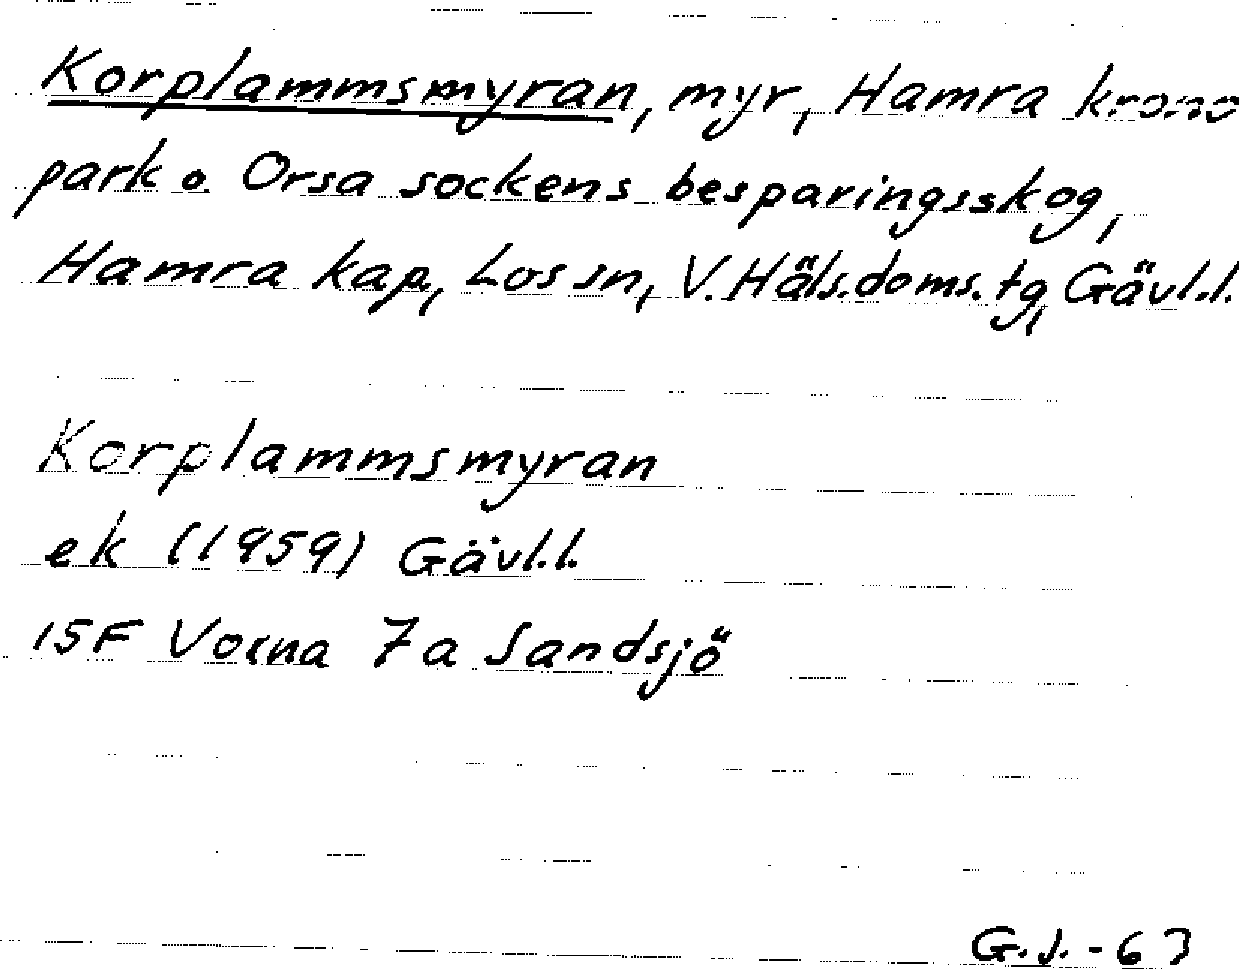 Korplammsmyran, myr, Hamra krono
park o. Orsa sockens besparingsskog,
Hamra kap, Los sn, V. Häls. doms. tg, Gävl.l.
Korplammsmyran
ek (1959) Gävl.l.
15F Voxna 7a Sandsjö
G.J.-63